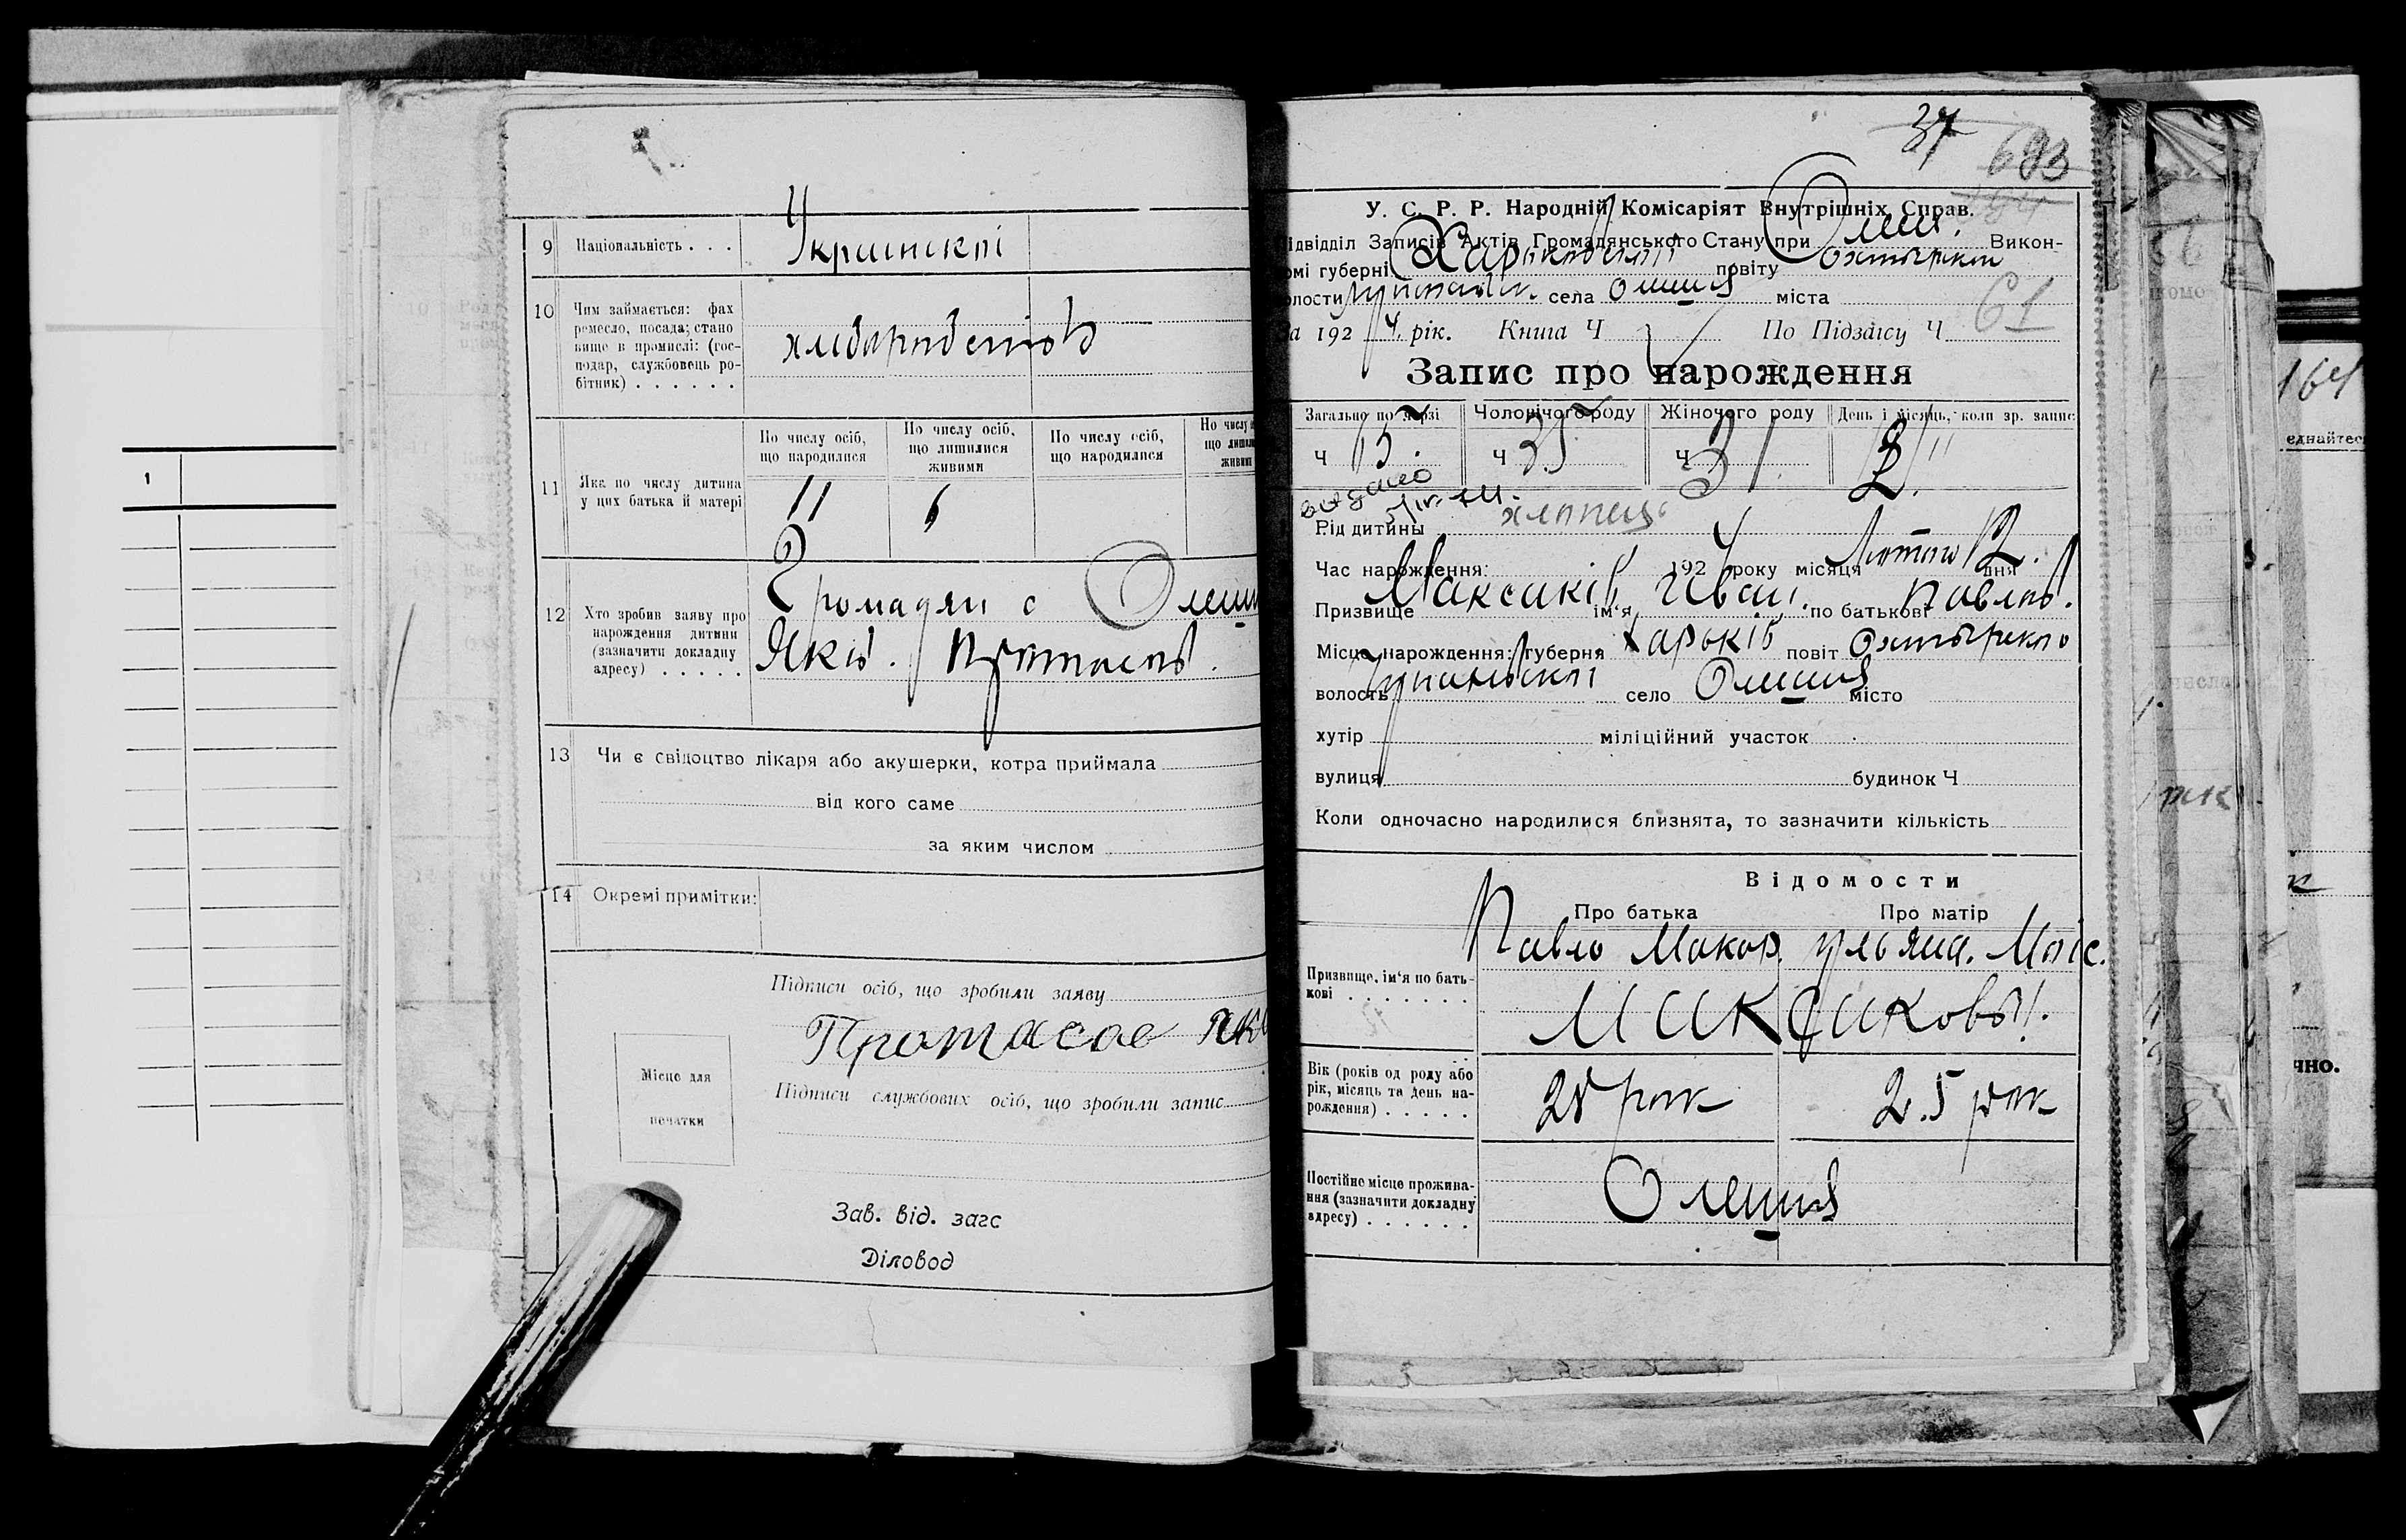 9 Національність . . . Украинскоі
10 Чим займається: фах
ремесло, посада; стано
вище в промислі: (гос-
подар, службовець ро-
бітник) . . . . . .
11 Яка по числу дитина
у цих батька й матері
По числу осіб,
що народилися
По числу осіб,
що лишилися
живими
По числу осіб,
що народилися
11 6
12 Хто зробив заяву про
нарождення дитини
(зазначити докладну
адресу) . . . . .
Громадян с Олеш
Яків. Протасов.
13 Чи є свідоцтво лікаря або акушерки, котра приймала
від кого саме
за яким числом
14 Окремі примітки:
Підписи осіб, що зробили заяву
Протасов Яков
Місце для
печатки
Підписи службових осіб, що зробили запис
Зав. від. загс
Діловод
37
693
У. С. Р. Р. Народній Комісаріят Внутрішніх Справ.
Підвідділ Записів Актів Громадянського Стану при Олеш. Викон-
омі губерні Харьковскоі повіту Охтырскои
олости села Олешня міста
За 192 4 рік. Книга Ч По Підзагсу Ч 61
Запис про нарождення
Загально по черзі Чоловічого роду Жіночого роду День і місяць, коли зр. запис
Ч Ч Ч 31
Рід дитины хлопець
Час нарождення: 192 4 року місяця Лютого 2. дня
Призвище Максаків ім'я Иван. по батькові Павлов.
Місце нарождення: губерня Харьків повіт Охтырского
волость Чупаховскоі село Олешня місто
хутір міліційний участок
вулиця будинок Ч
Коли одночасно народилися близнята, то зазначити кількість
Відомости
Про батька Про матір
Призвище, ім'я по бать-
кові . . . . . . .
Павло Макар. Ульяна. Моіс.
Максаковы.
Вік (років од роду або
рік, місяць та день на-
рождення) . . . . .
28 рок 25 рок
Постійне місце прожива-
ння (зазначити докладну
адресу) . . . . . .
Олешня